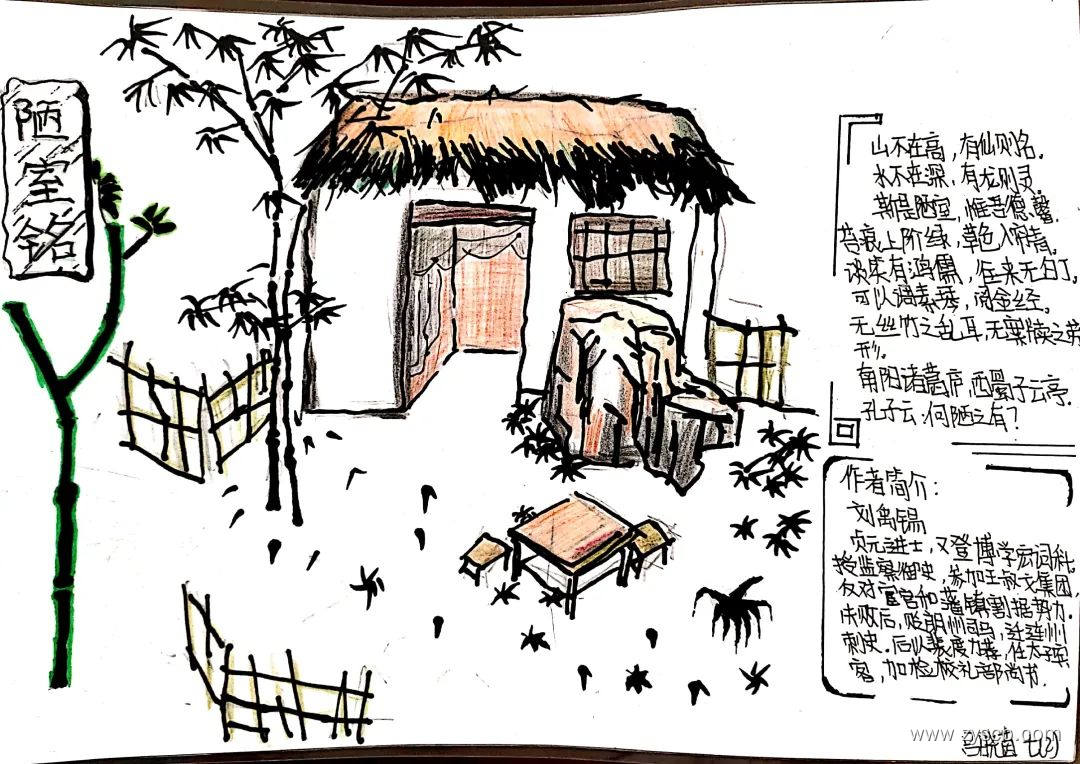 陋室铭
山不在高，有仙则名。
水不在深，有龙则灵。
斯是陋室，惟吾德馨。
苔痕上阶绿，草色入帘青。
谈笑有鸿儒，往来无白丁。
可以调素琴，阅金经。
无丝竹之乱耳，无案牍之劳
形。
南阳诸葛庐，西蜀子云亭。
孔子云：何陋之有？
作者简介：
刘禹锡
贞元进士，又登博学宏词科。
授监察御史，参加王叔文集团，
反对宦官和藩镇割据势力。
失败后，贬朗州司马，迁连州
刺史。后以裴度力荐，任太子宾
客，加检校礼部尚书。
七(2)